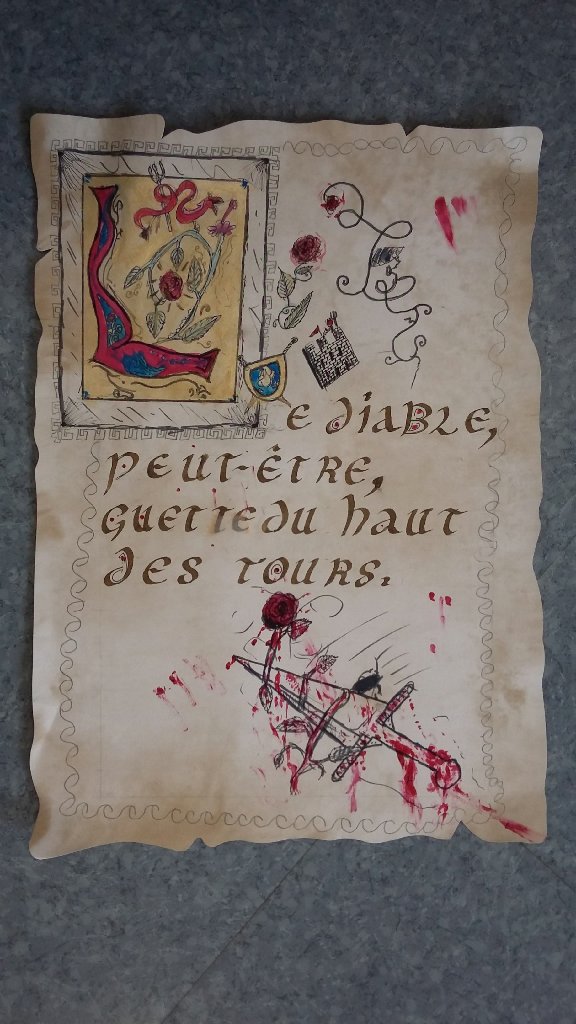 Le diable,
peut-être,
guette du haut
des tours.